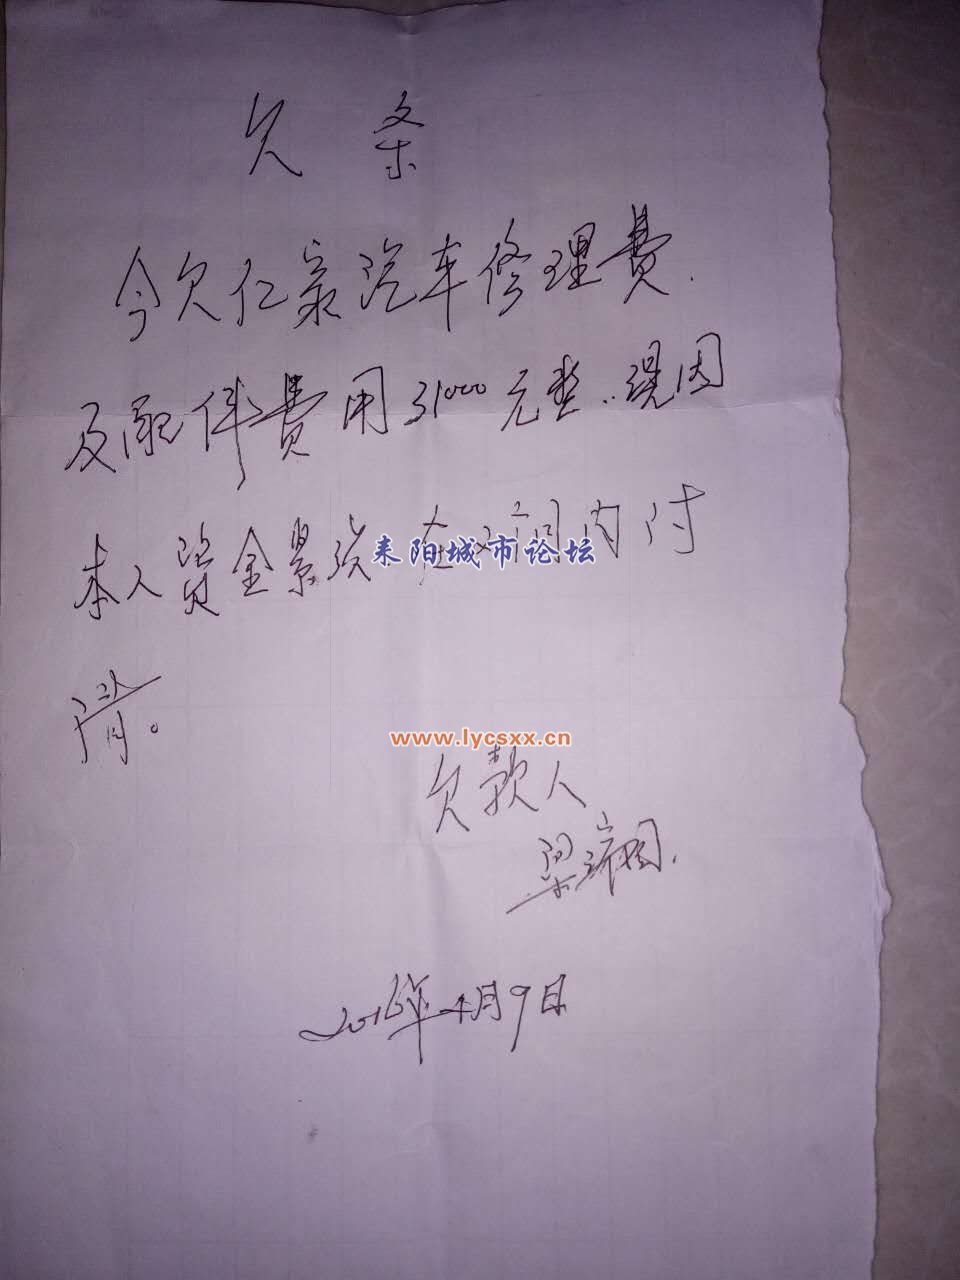 欠条
今欠仁豪汽车修理费.
及配件费用31000元整..现因
本人资金紧张 在 个月内付
耒阳城市论坛
清。
www.lycsxx.cn
欠款人
梁
2016年4月9日